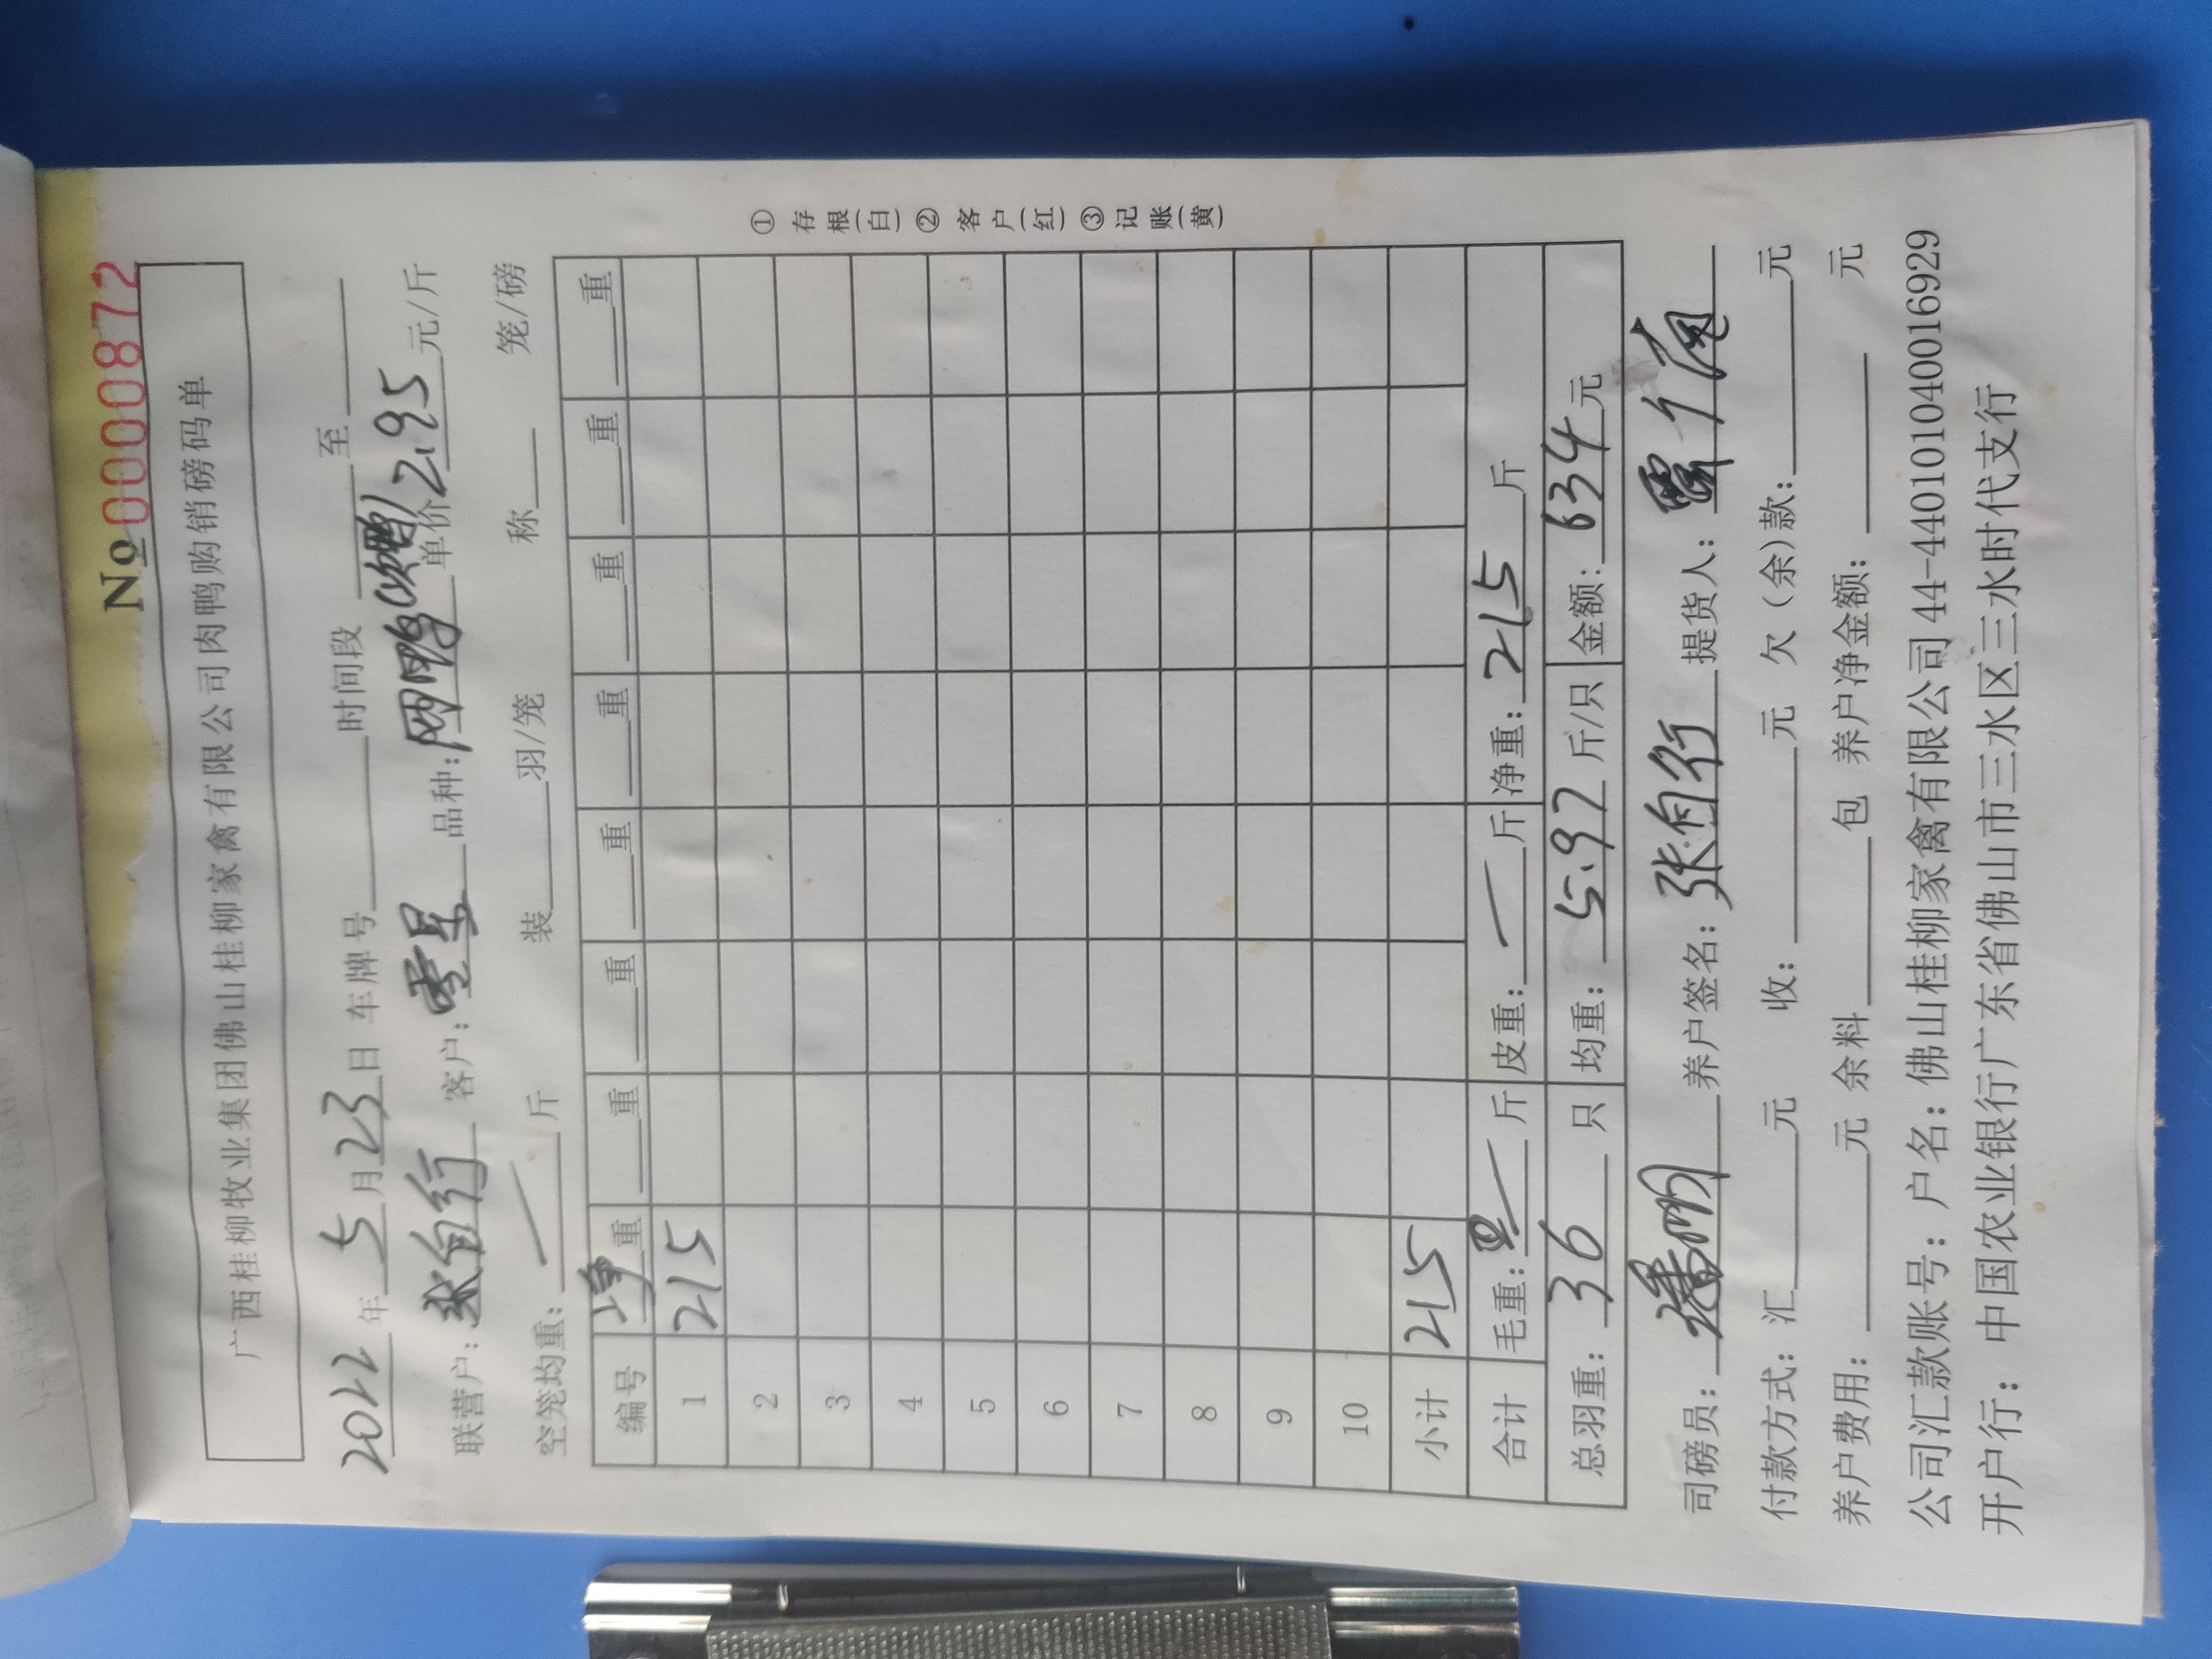 № 0000872
广西桂柳牧业集团佛山桂柳家禽有限公司肉鸭购销磅码单
2022年5月23日 车牌号 时间段 至
联营户：张自行 客户：零星 品种： 单价2.95元/斤
空笼均重：— 斤 装 羽/笼 称 笼/磅
编号 净重 重 重 重 重 重 重 重
1 215
2
3
4
5
6
7
8
9
10
小计 215
合计 毛重：— 斤 皮重：— 斤 净重：215斤
总羽重：36只 均重：5.97斤/只 金额：634元
①存根(白)②客户(红)③记账(黄)
司磅员： 养户签名：张自行 提货人：
付款方式：汇 元 收： 元 欠（余）款： 元
养户费用： 元 余料 包 养户净金额： 元
公司汇款账号：户名：佛山桂柳家禽有限公司 44-440101040016929
开户行：中国农业银行广东省佛山市三水区三水时代支行